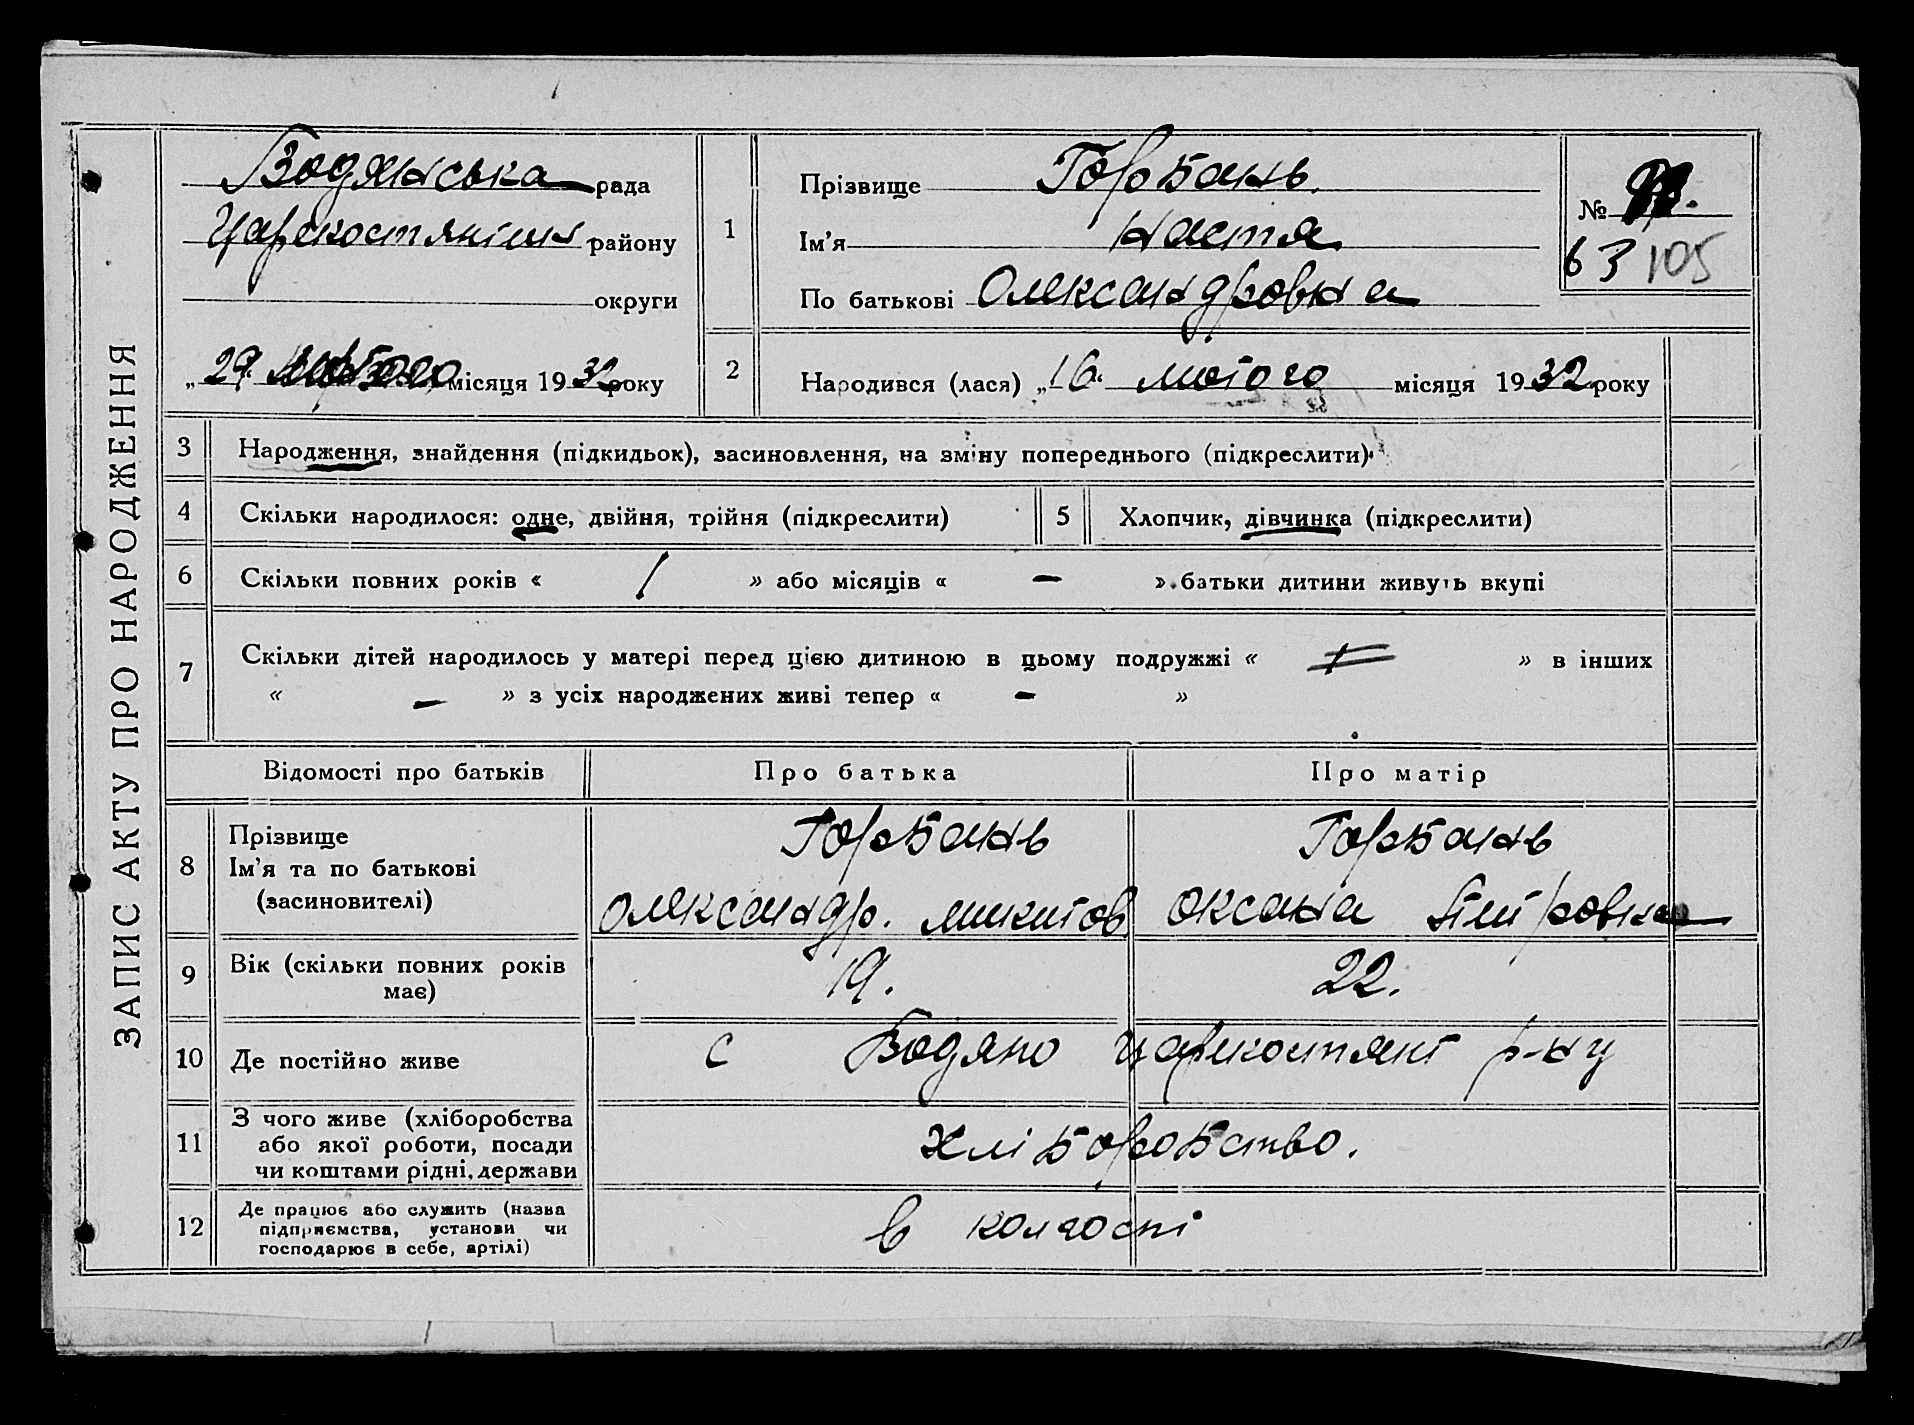 ЗАПИС АКТУ ПРО НАРОДЖЕННЯ
Водянська рада
району
округи
„29 місяця 1932 року
1
Прізвище Горбань.
Ім’я Настя
По батькові Олександровна
№
63 105
2
Народився (лася) „16“ лютого місяця 1932 року
3 Народження, знайдення (підкидьок), засиновлення, на зміну попереднього (підкреслити)
4 Скільки народилося: одне, двійня, трійня (підкреслити) 5 Хлопчик, дівчинка (підкреслити)
6 Скільки повних років « / » або місяців « — » батьки дитини живуть вкупі
7 Скільки дітей народилось у матері перед цією дитиною в цьому подружжі « » в інших
« — » з усіх народжених живі тепер « - »
Відомості про батьків Про батька Про матір
8 Прізвище Горбань Горбань
Ім’я та по батькові
(засиновителі) Олександр. Микитов Оксана
9 Вік (скільки повних років має) 19. 22.
10 Де постійно живе с Водяно р-ну
11 З чого живе (хліборобства
або якої роботи, посади
чи коштами рідні, держави Хліборобство.
12 Де працює або служить (назва
підприємства, установи чи
господарює в себе, артілі) в колгоспі